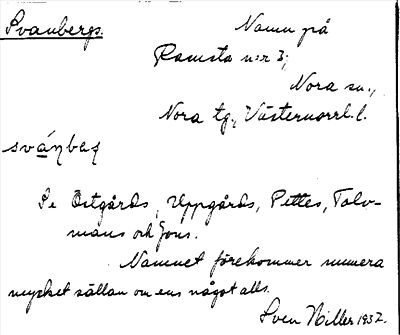 Svanbergs.
Namn på
Ramsta n:r 3;
Nora sn.,
Nora tg., Västernorrl. l.
Se Östgårds, Uppgårds, Pettes, Tolv-
mans och Jons.
Namnet förekommer numera
mycket sällan om ens något alls.
Sven Niller 1937.